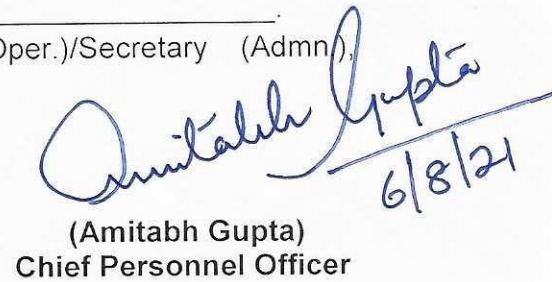 Oper.)/Secretary (Admn.),
Amitabh Gupta
6/8/21
(Amitabh Gupta)
Chief Personnel Officer